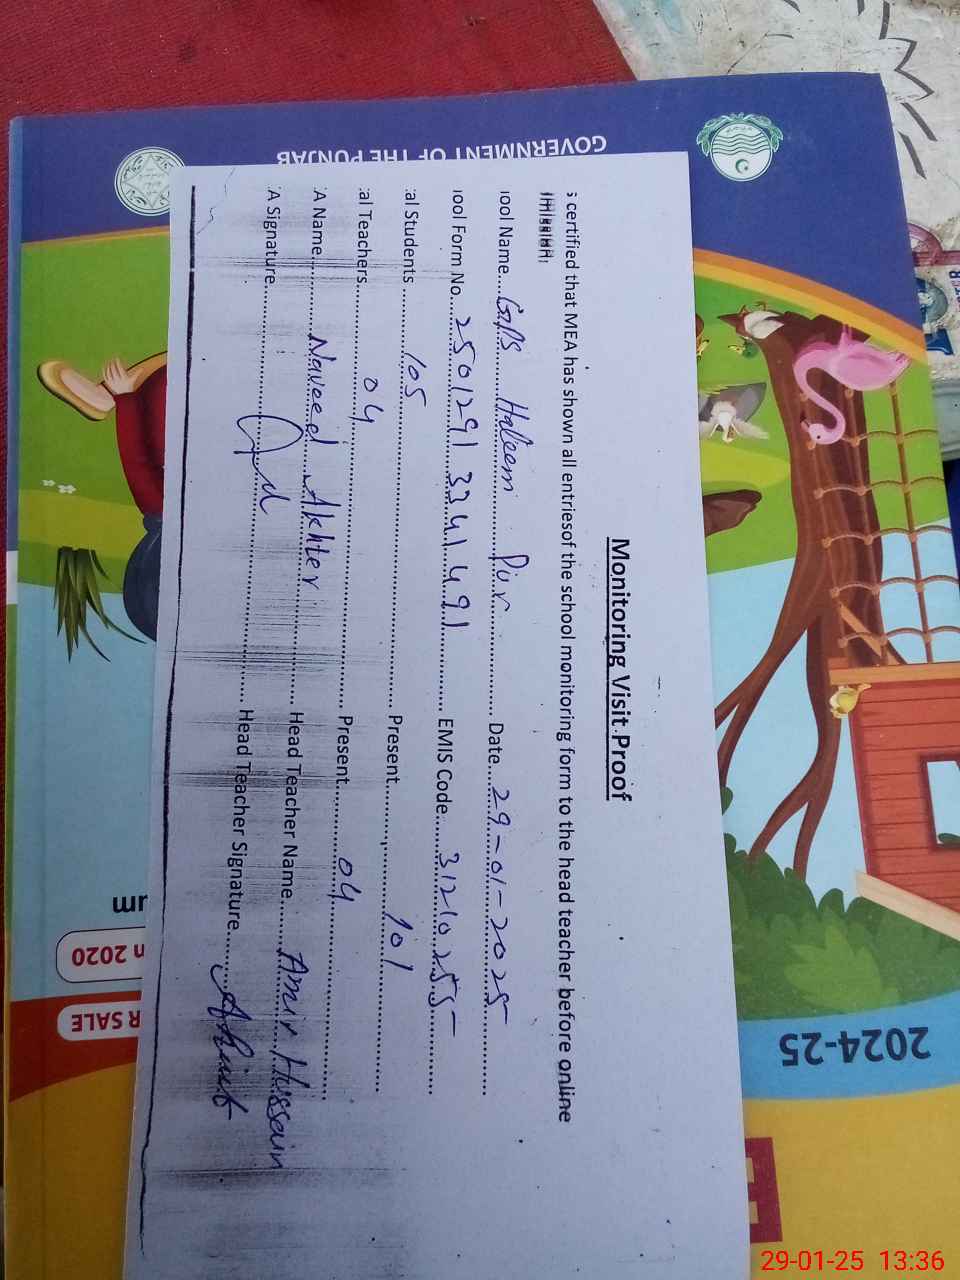 Monitoring Visit Proof
s certified that MEA has shown all entriesof the school monitoring form to the head teacher before online
ool Name....GPS Haleem Pur........ Date....29-01-2025........
ool Form No...2501291334 1491........ EMIS Code.....31210255........
al Students .....105........ Present........101........
al Teachers.....04........ Present........04........
A Name........Naveed Akhter........ Head Teacher Name.....Amir Hussain
A Signature........ Head Teacher Signature........
GOVERNMENT OF THE PUNJAB
2024-25
n 2020
R SALE
um
29-01-25 13:36